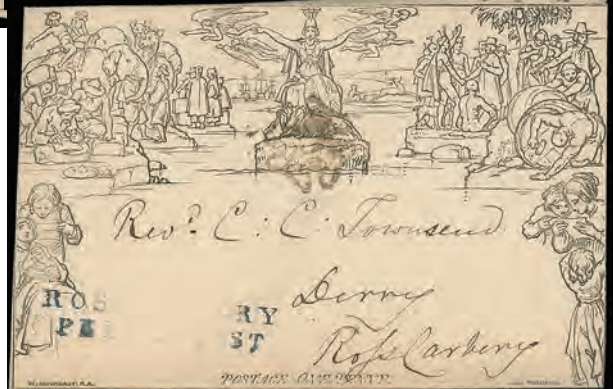 Revd. C: C: Townsend
Derry
Ross Carbery
ROS RY
PE ST
POSTAGE ONE PENNY.
W. MULREADY, R.A.